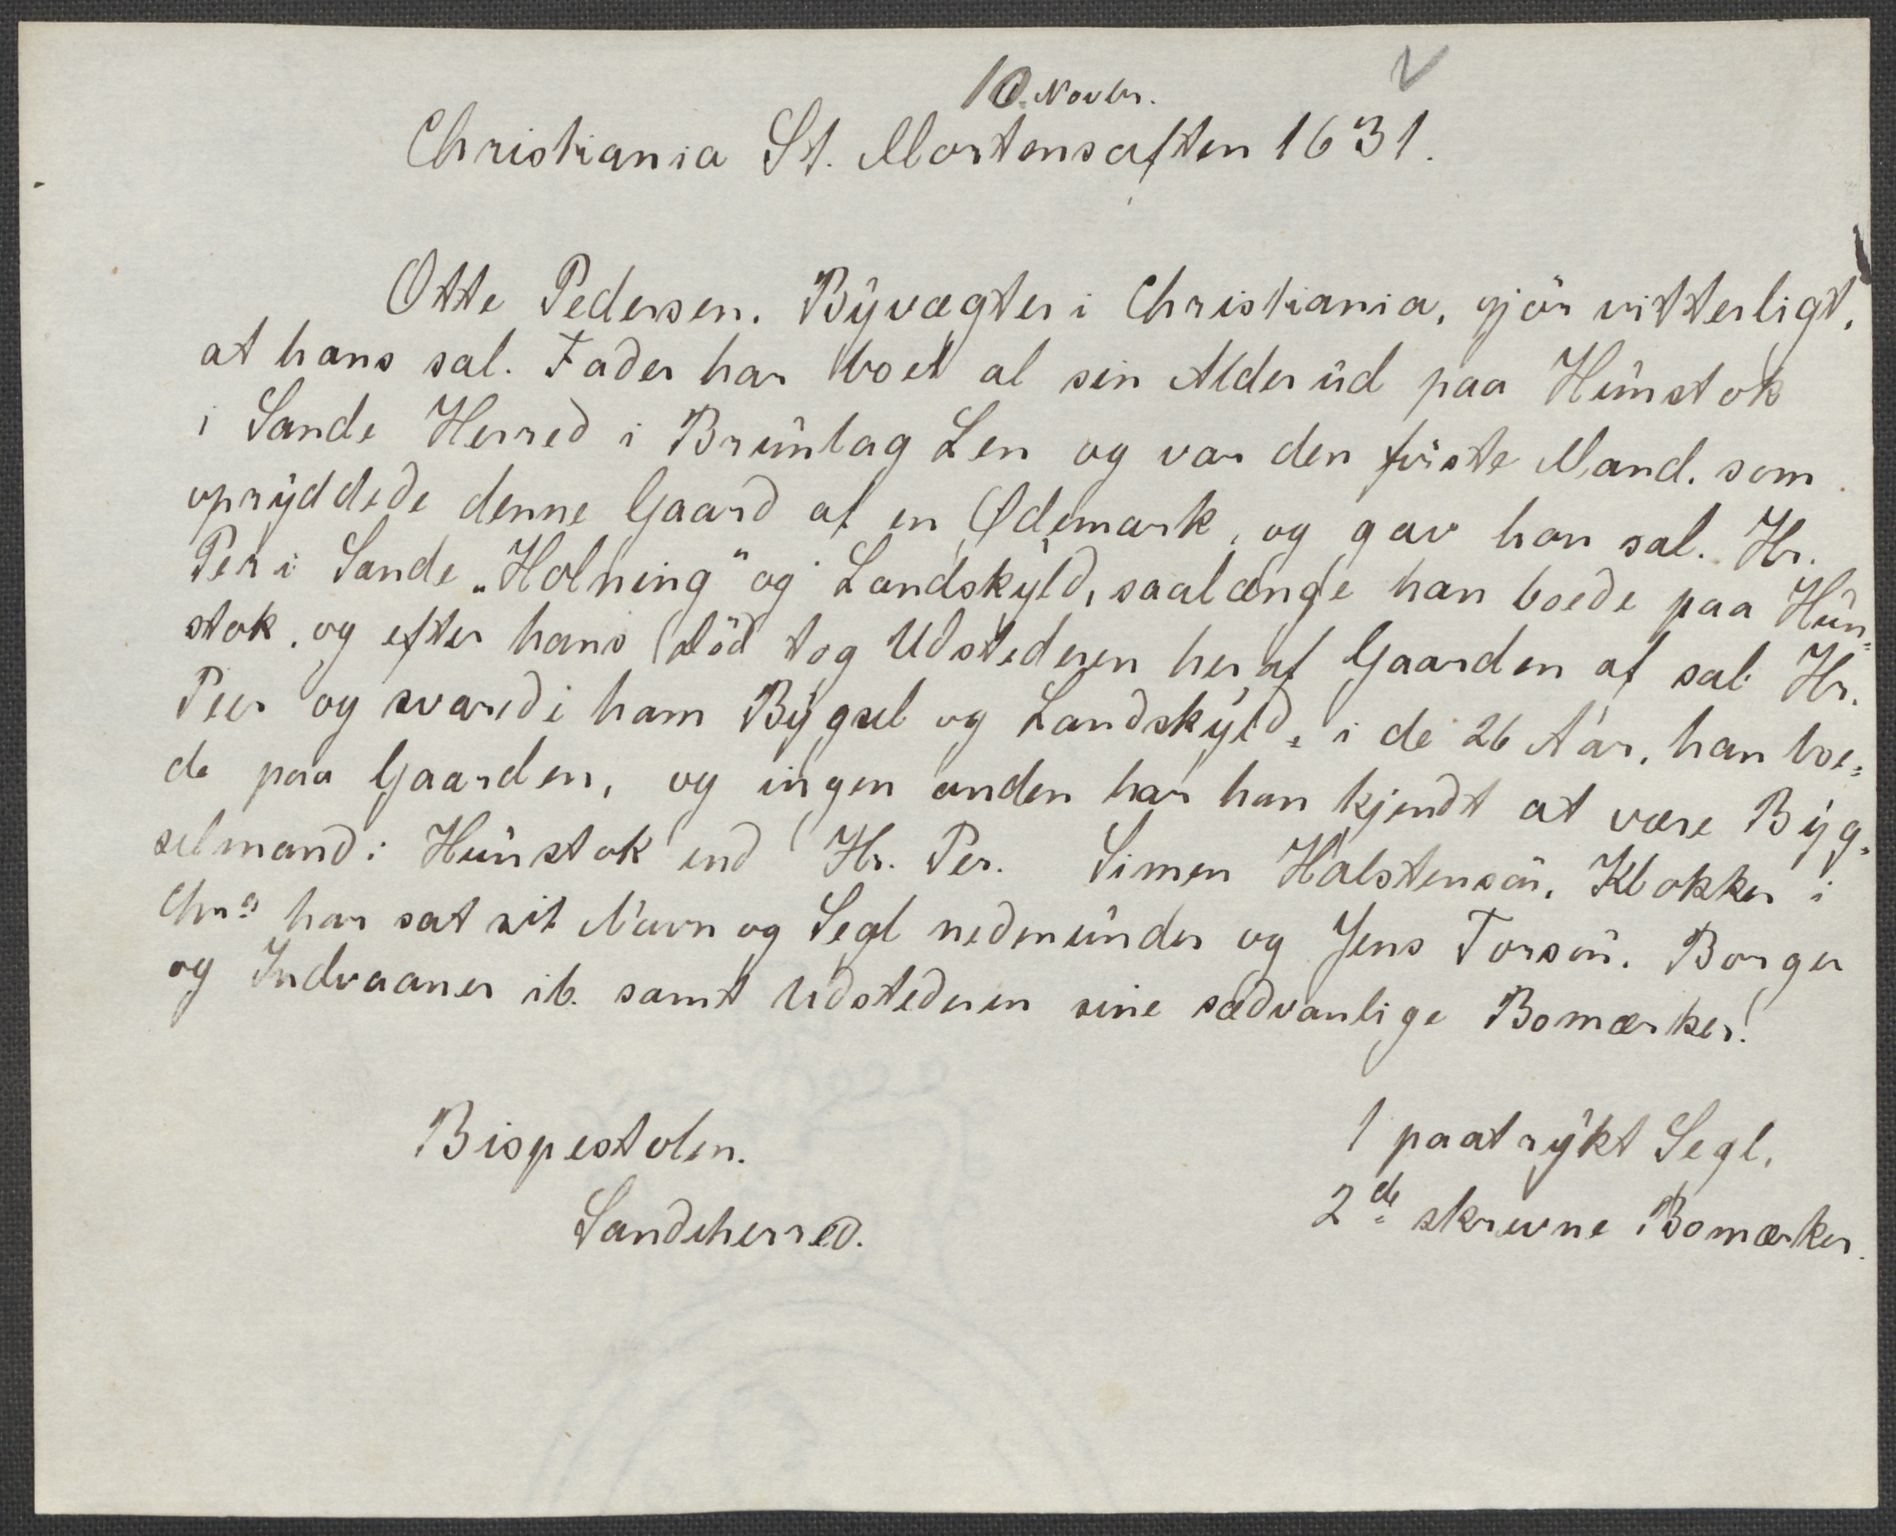 10. Novbr.
Christiania St. Mortensaften 1631.
Otte Pedersen. Byvægter i Christiania, gjör vitterligt,
at hans sal. Fader har boet al sin Alder ud paa Hunstok
i Sande Herred i Brunlag Len og var den förste Mand. som
opryddede denne Gaard af en Ødemark, og gav han sal. Hr.
Per i Sande "Holning" og Landskyld, saalænge han boede paa Hun-
stok. og efter hans Död tog Udstederen heraf Gaarden af sal. Hr.
Peer og svarede ham Bygsel og Landskyld, i de 26 Aar, han boe-
de paa Gaarden, og ingen anden har han kjendt at være Byg-
selmand i Hunstok end Hr. Per. Simen Halstensön, Klokker i
Chra har sat sit Navn og Segl nedenunder og Jens Torsön. Borger
og Indvaaner ib. samt Udstederen sine sædvanlige Bomærker.
Bispestolen.
Sandeherred.
1 paatrykt Segl,
2de skrevne Bomærker.